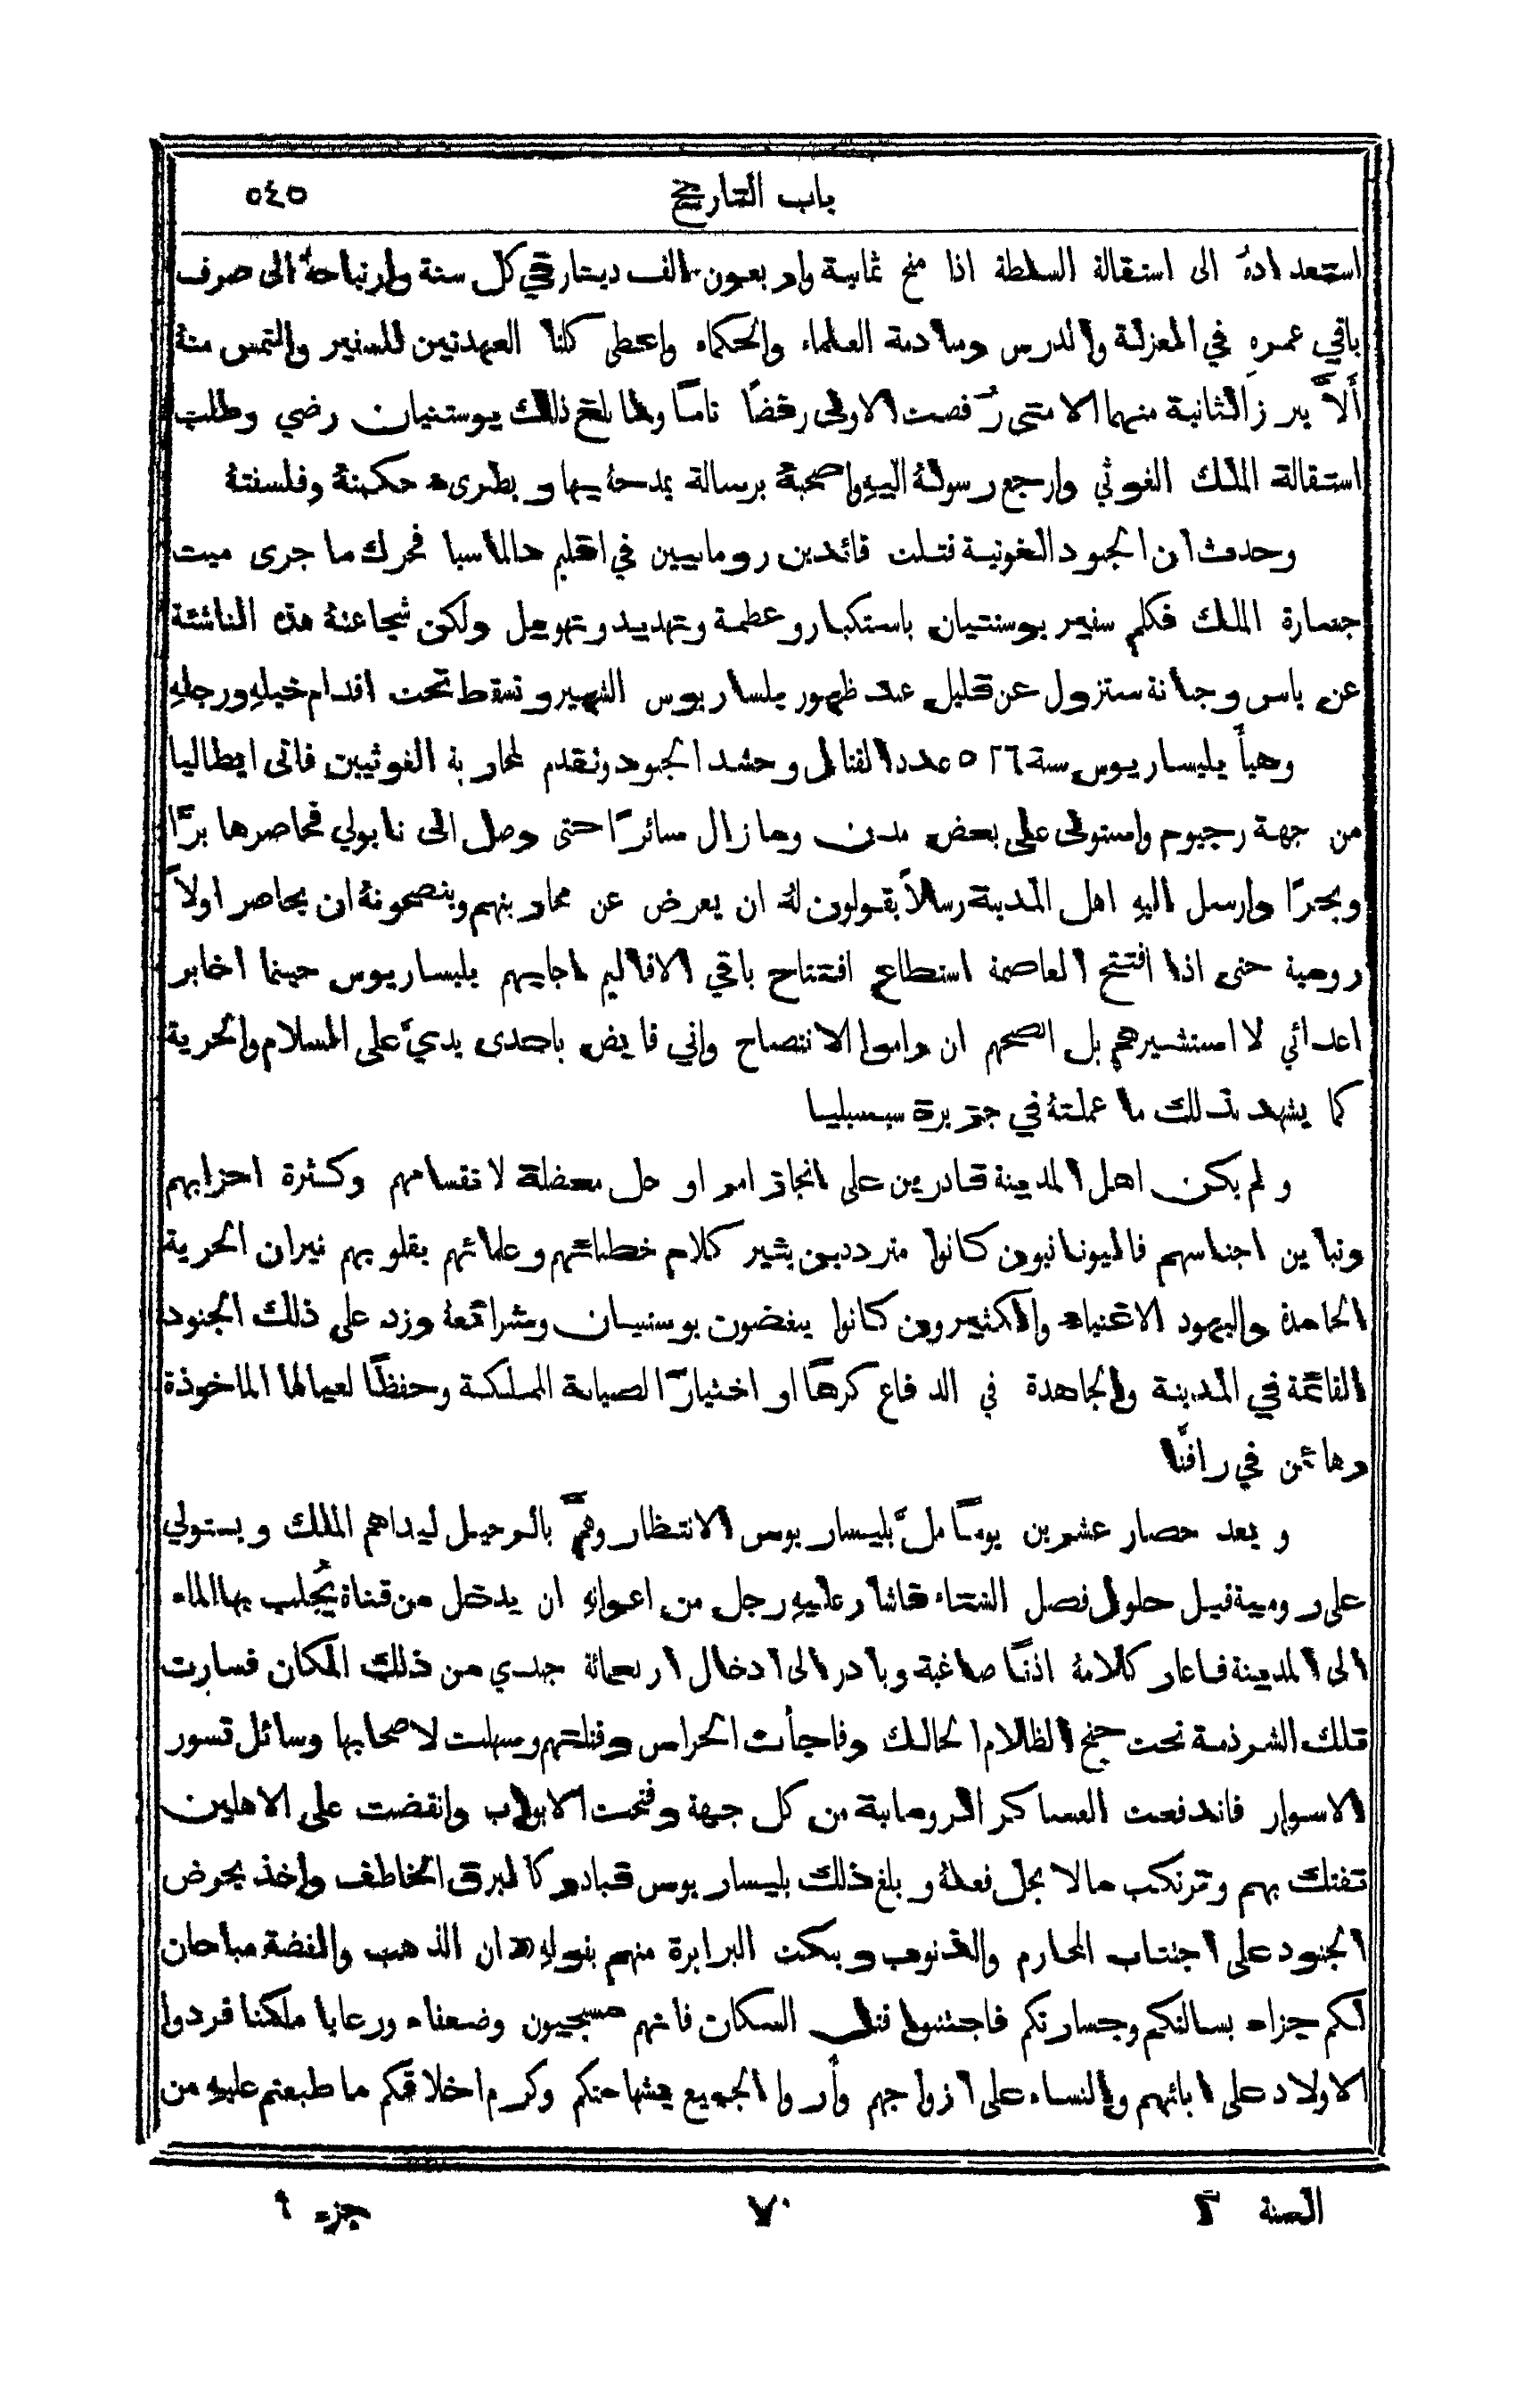 باب التاريخ ٥٤٥
استعدادهُ الى استقالة السلطة اذا منح ثمانية واربعون الف دينار في كل سنة وارتياحهُ الى صرف
باقي عمرهِ في العزلة والدرس ومنادمة العلماء والحكماء واعطى كلتا العهدتين للسفير والتمس منهُ
أَلاَّ يبرز الثانية منهما الا متى رُفضت الاولى رفضًا تامًا ولما بلغ ذلك يوستنيان رضي وطلب
استقالة الملك الغوثي وارجع رسولهُ اليهِ واصحبهُ برسالة يمدحهُ بها ويطرىء حكمتهُ وفلسفتهُ
وحدث ان الجنود الغوثية قتلت قائدين رومانيين في اقليم دالماسيا فحرك ما جرى ميت
جسارة الملك فكلم سفير يوستنيان باستكبار وعظمة وتهديد وتهويل ولكن شجاعتهُ هذه الناشئة
عن ياس وجبانة ستزول عن قليل عند ظهور بليساريوس الشهير وتسقط تحت اقدام خيلهِ ورجلهِ
وهيأ بليساريوس سنة ٥٣٦ عدد القتال وحشد الجنود وتقدم لمحاربة الغوثيين فاتى ايطاليا
من جهة رجيوم واستولى على بعض مدن وما زال سائرًا حتى وصل الى نابولي فحاصرها برًّا
وبحرًا وارسل اليهِ اهل المدينة رسلاً يقولون لهُ ان يعرض عن محاربتهم وينصحونهُ ان يحاصر اولاً
رومية حتى اذا افتتح العاصمة استطاع افتتاح باقي الاقاليم اجابهم بليساريوس حينما اخابر
اعدائي لا استشيرهم بل انصحهم ان راموا الانتصاح واني قابض باحدى يديَّ على السلام والحرية
كما يشهد بذلك ما عملتهُ في جزيرة سيسيليا
ولم يكن اهل المدينة قادرين على انجاز امر او حل معضلة لانقسامهم وكثرة احزابهم
وتباين اجناسهم فاليونانيون كانوا مترددين يثير كلام خطبائهم وعلمائهم بقلوبهم نيران الحرية
الخامدة واليهود الاغنياء والكثيرون كانوا يبغضون يوستنيان وشرائعهُ وزد على ذلك الجنود
القائمة في المدينة والجاهدة في الدفاع كرهًا او اختيارًا لصيانة المملكة وحفظًا لعيالها الماخوذة
رهائن في رافنَّا
وبعد حصار عشرين يومًا ملَّ بليساريوس الانتظار وهمَّ بالرحيل ليداهم الملك ويستولي
على رومية قبل حلول فصل الشتاء فاشار عليهِ رجل من اعوانهِ ان يدخل من قناة يُجلب بها الماء
الى المدينة فاعار كلامهُ اذنًا صاغية وبادر الى ادخال اربعمائة جندي من ذلك المكان فسارت
تلك الشرذمة تحت جنح الظلام الحالك وفاجأت الحراس وقتلتهم وسهلت لاصحابها وسائل تسور
الاسوار فاندفعت العساكر الرومانية من كل جهة وفتحت الابواب وانقضت على الاهلين
تفتك بهم وترتكب ما لا يحل فعلهُ وبلغ ذلك بليساريوس فبادر كالبرق الخاطف واخذ يحرض
الجنود على اجتناب المحارم والذنوب ويبكت البرابرة منهم بقولهِ «ان الذهب والفضة مباحان
لكم جزاء بسالتكم وجسارتكم فاجتنبوا قتل السكان فانهم مسيحيون وضعفاء ورعايا ملكنا فردوا
الاولاد على ابائهم والنساء على ازواجهم وأروا الجميع بشهامتكم وكرم اخلاقكم ما طبعتم عليهِ من
السنة ٢ ٧٠ جزء ٩